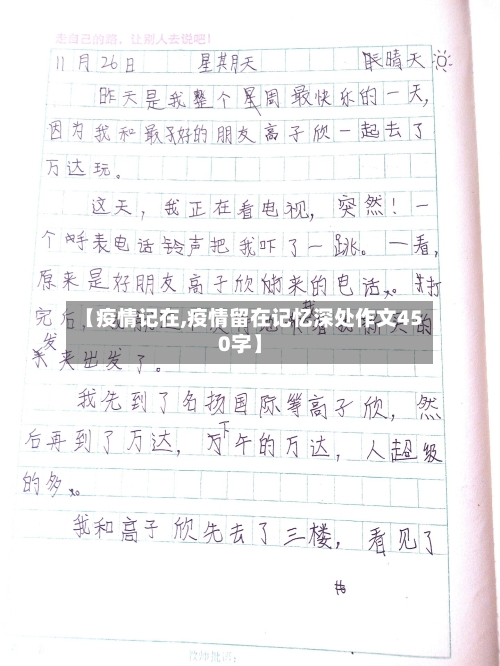 走自己的路，让别人去说吧！
11月26日 星期天 晴天
昨天是我整个星周最快乐的一天，
因为我和最好的朋友高子欣一起去了
万达玩。
这天，我正在看电视，突然！一
个手表电话铃声把我吓了一跳。一看，
原来是好朋友高子欣来的电话。打
【疫情记在,疫情留在记忆深处作文45
完后，
0字】
发
来出发了。
我先到了名扬国际等高子欣，然
后再到了万达，下午的万达，人超级
的多。
我和高子欣先去了三楼，看见了
教师批语：